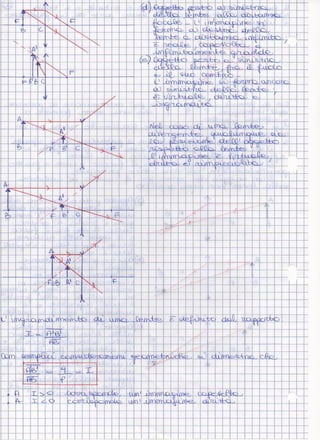 (d) Oggetto posto a sinistra
della lente alla distanza
focale. L'immagine si
forma a destra della
lente a distanza infinita,
è reale capovolta e
infinitamente grande
(e) Oggetto posto a sinistra
della lente, fra il fuoco
e il suo centro.
L'immagine si forma ancora
a sinistra della lente,
è virtuale, diritta e
ingrandita
Nel caso di una lente
divergente qualunque sia
la posizione dell'oggetto
rispetto alla lente
l'immagine è virtuale,
diritta e rimpicciolita
L'ingrandimento di una lente è definito dal rapporto
I = A'B' / AB
Con semplici considerazioni geometriche si dimostra che
A'B' / AB = q / p = I
A I>0 corrisponde un'immagine capovolta
A I<0 corrisponde un'immagine diritta